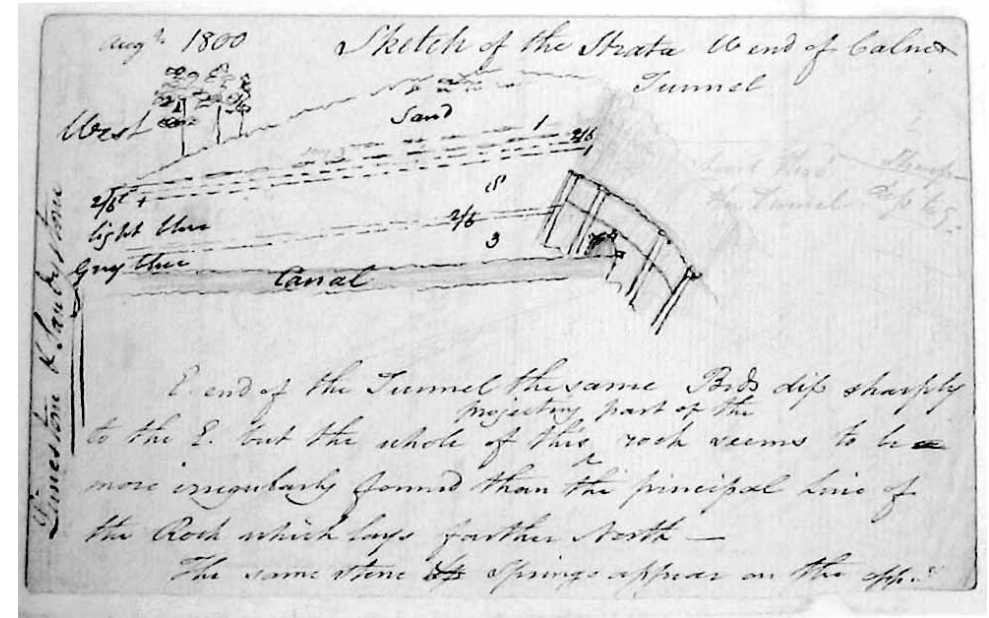 Augt 1800 Sketch of the Strata W end of Calne
Tunnel
West
Sand
1
2/6
2/6
light blue
8
2/6
3
Grey blue
Canal
Limestone K
E. end of the Tunnel the same Beds dip sharply
projecting part of the
to the E. but the whole of this ^ rock seems to be
more irregularly formed than the principal line of
the Rock which lays farther North —
The same stone springs appear on the opp.